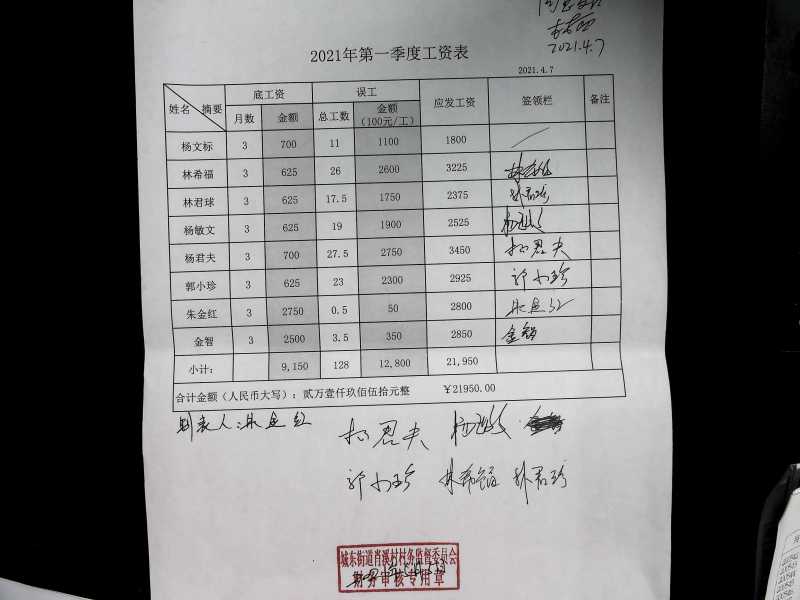 2021.4.7
2021年第一季度工资表
2021.4.7
姓名 摘要 底工资 误工 应发工资 签领栏 备注
月数 金额 总工数 金额（100元/工）
杨文标 3 700 11 1100 1800
林希福 3 625 26 2600 3225 林希福
林君球 3 625 17.5 1750 2375
杨敏文 3 625 19 1900 2525
杨君夫 3 700 27.5 2750 3450 杨君夫
郭小珍 3 625 23 2300 2925 郭小珍
朱金红 3 2750 0.5 50 2800 朱金红
金智 3 2500 3.5 350 2850 金智
小计： 9,150 128 12,800 21,950
合计金额（人民币大写）：贰万壹仟玖佰伍拾元整 ￥21950.00
制表人:朱金红 杨君夫
郭小珍 林希福
城东街道肖溪村村务监督委员会
财务审核专用章